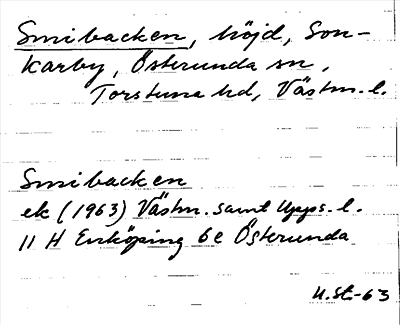 Smibacken, höjd, Son-
karby, Österunda sn,
Torstuna hd, Västm. l.
Smibacken
ek (1963) Västm. samt Upps. l.
11 H Enköping 6e Österunda
U.St-63